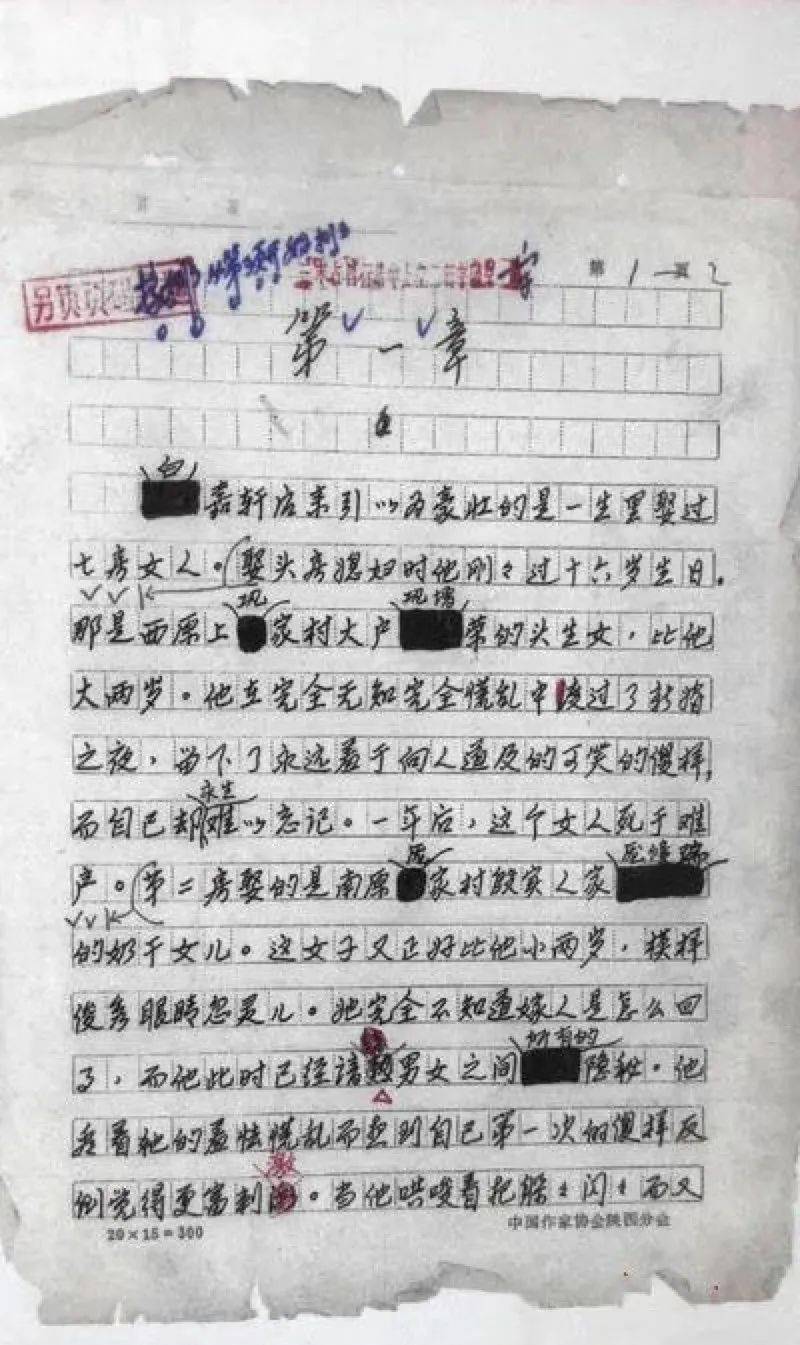 另页
第1页2
第一章
白嘉轩后来引以为豪壮的是一生里娶过
七房女人。娶头房媳妇时他刚々过十六岁生日。
那是西原上巩家村大户巩增荣的头生女，比他
大两岁。他在完全无知完全慌乱中度过了新婚
之夜，留下了永远羞于向人道及的可笑的傻样，
而自己却永生难以忘记。一年后，这个女人死于难
产。第二房娶的是南原庞家村殷实人家庞修瑞
的奶干女儿。这女子又正好比他小两岁，模样
俊秀眼睛忽灵儿。她完全不知道嫁人是怎么回
事，而他此时已经谙熟男女之间所有的隐秘。他
看着她的羞怯慌乱而想到自己第一次的傻样反
倒觉得更富刺激。当他哄唆着把躲々闪々而又
20×15=300
中国作家协会陕西分会